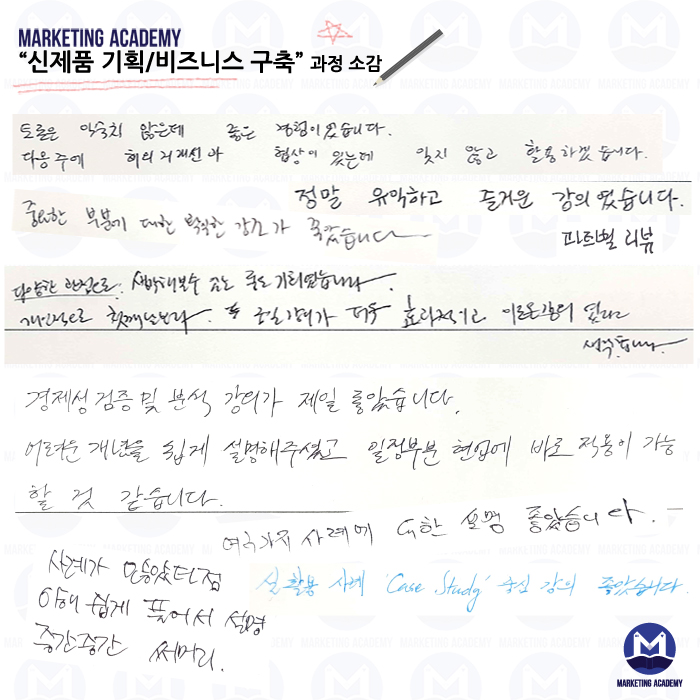 MARKETING ACADEMY
“신제품 기획/비즈니스 구축” 과정 소감
토론은 익숙치 않은데 좋은 경험이었습니다.
다음주에 회의 거래선과 협상이 있는데 잊지 않고 활용하겠습니다.
정말 유익하고 즐거운 강의였습니다.
중요한 부분에 대한 확실한 강조가 좋았습니다
파트별 리뷰
다양한 관점으로 생각해볼수 있는 좋은 기회였습니다.
개인적으로 첫째날보다 둘째날 강의가 더욱 효과적이고 이로운 강의 였다고
생각합니다
경제성 검증 및 분석 강의가 제일 좋았습니다.
어려운 개념을 쉽게 설명해주셨고 일정부분 현업에 바로 적용이 가능
할 것 같습니다.
여러가지 사례에 대한 설명 좋았습니다.
사례가 많았던 점
이해 쉽게 풀어서 설명
중간중간 써머리.
실활용 사례 'Case Study' 중심 강의 좋았습니다.
MARKETING ACADEMY